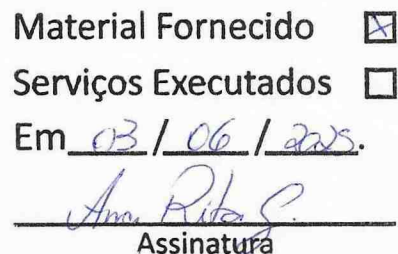 Material Fornecido ☒
Serviços Executados ☐
Em 03 / 06 / 2025.
Ana Rita S.
Assinatura